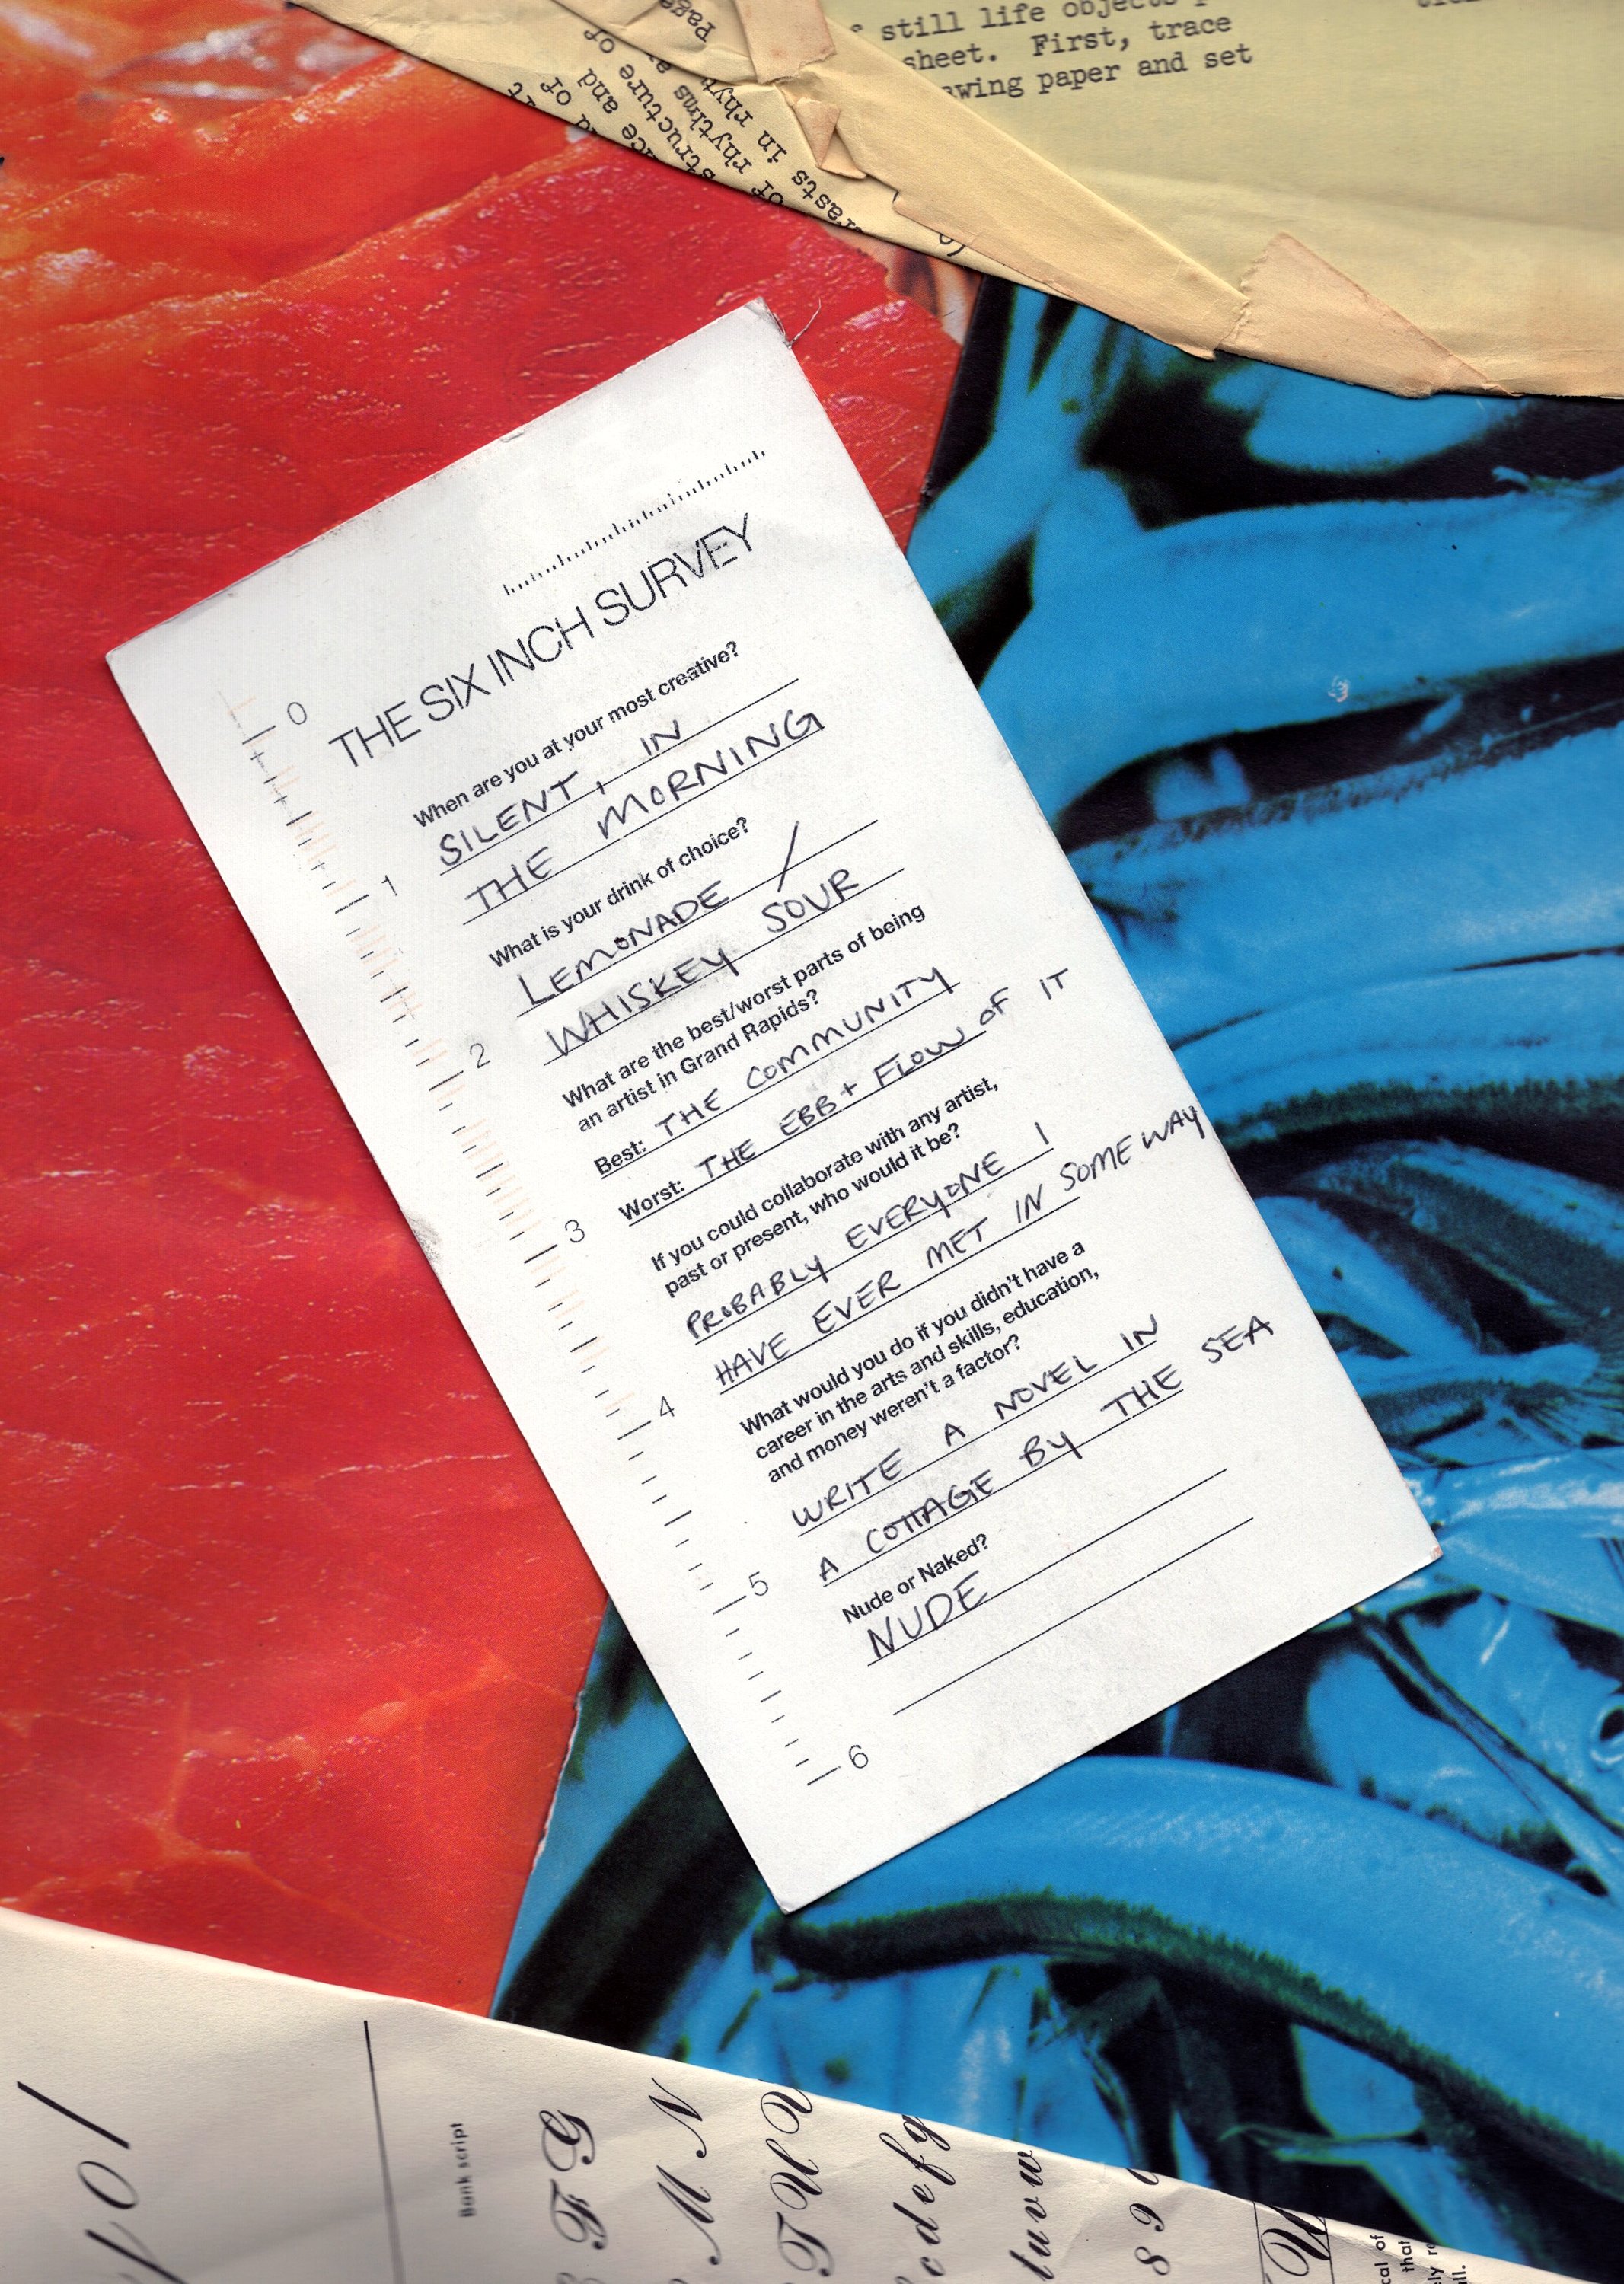 still life objects
sheet. First, trace
wing paper and set
Page
of
rhythms
in rhyt
structure
and
of
THE SIX INCH SURVEY
0
When are you at your most creative?
SILENT, IN
THE MORNING
1
What is your drink of choice?
LEMONADE /
WHISKEY SOUR
2
What are the best/worst parts of being
an artist in Grand Rapids?
Best: THE COMMUNITY
Worst: THE EBB + FLOW OF IT
3
If you could collaborate with any artist,
past or present, who would it be?
PROBABLY EVERYONE I
HAVE EVER MET IN SOME WAY
4
What would you do if you didn't have a
career in the arts and skills, education,
and money weren't a factor?
WRITE A NOVEL IN
A COTTAGE BY THE SEA
5
Nude or Naked?
NUDE
6
Bank script
F G
M N
T U V
c d e f g
t u v w
8 9
U
cal of
that